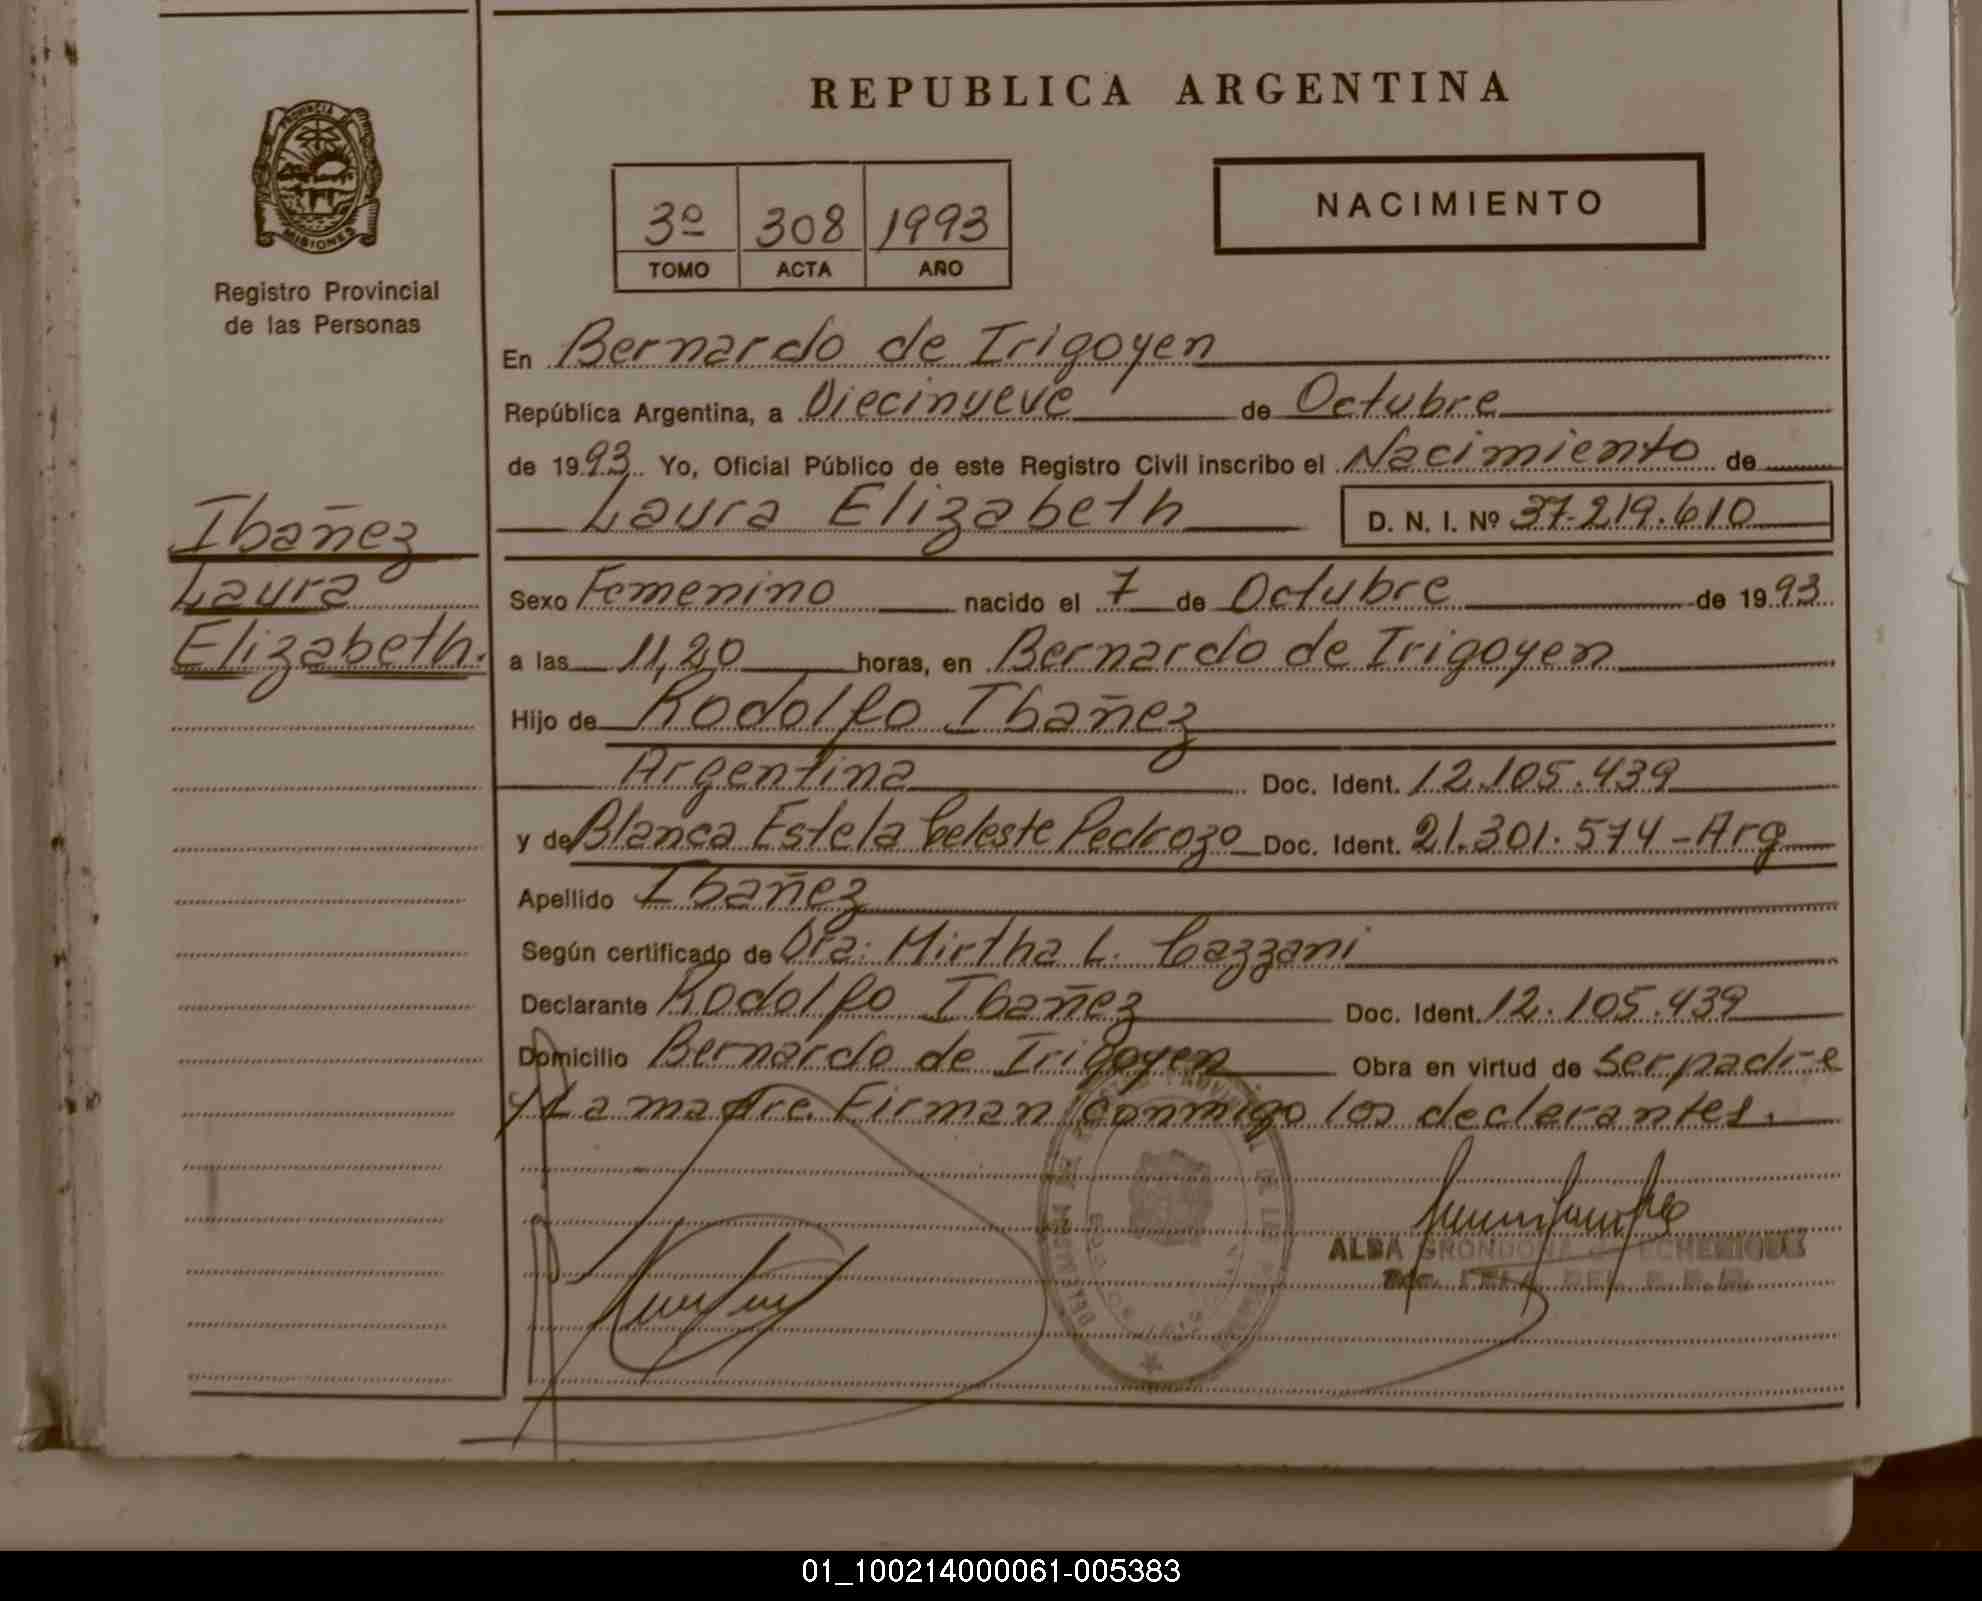 REPUBLICA ARGENTINA
PROVINCIA DE MISIONES
Registro Provincial
de las Personas
3º 308 1993
TOMO ACTA AÑO
NACIMIENTO
Ibañez
Laura
Elizabeth.
En Bernardo de Irigoyen
República Argentina, a Diecinueve de Octubre
de 1993 Yo, Oficial Público de este Registro Civil inscribo el Nacimiento de
Laura Elizabeth D. N. I. Nº 37.219.610
Sexo Femenino nacido el 7 de Octubre de 1993
a las 11,20 horas, en Bernardo de Irigoyen
Hijo de Rodolfo Ibañez
Argentina Doc. Ident. 12.105.439
y de Blanca Estela Celeste Pedrozo Doc. Ident. 21.301.574-Arg
Apellido Ibañez
Según certificado de Dra: Mirtha L. Cazzani
Declarante Rodolfo Ibañez Doc. Ident. 12.105.439
Domicilio Bernardo de Irigoyen Obra en virtud de ser padre
y La madre. Firman conmigo los declarantes.
ALBA GRONDONA ECHERIQUE
01_100214000061-005383